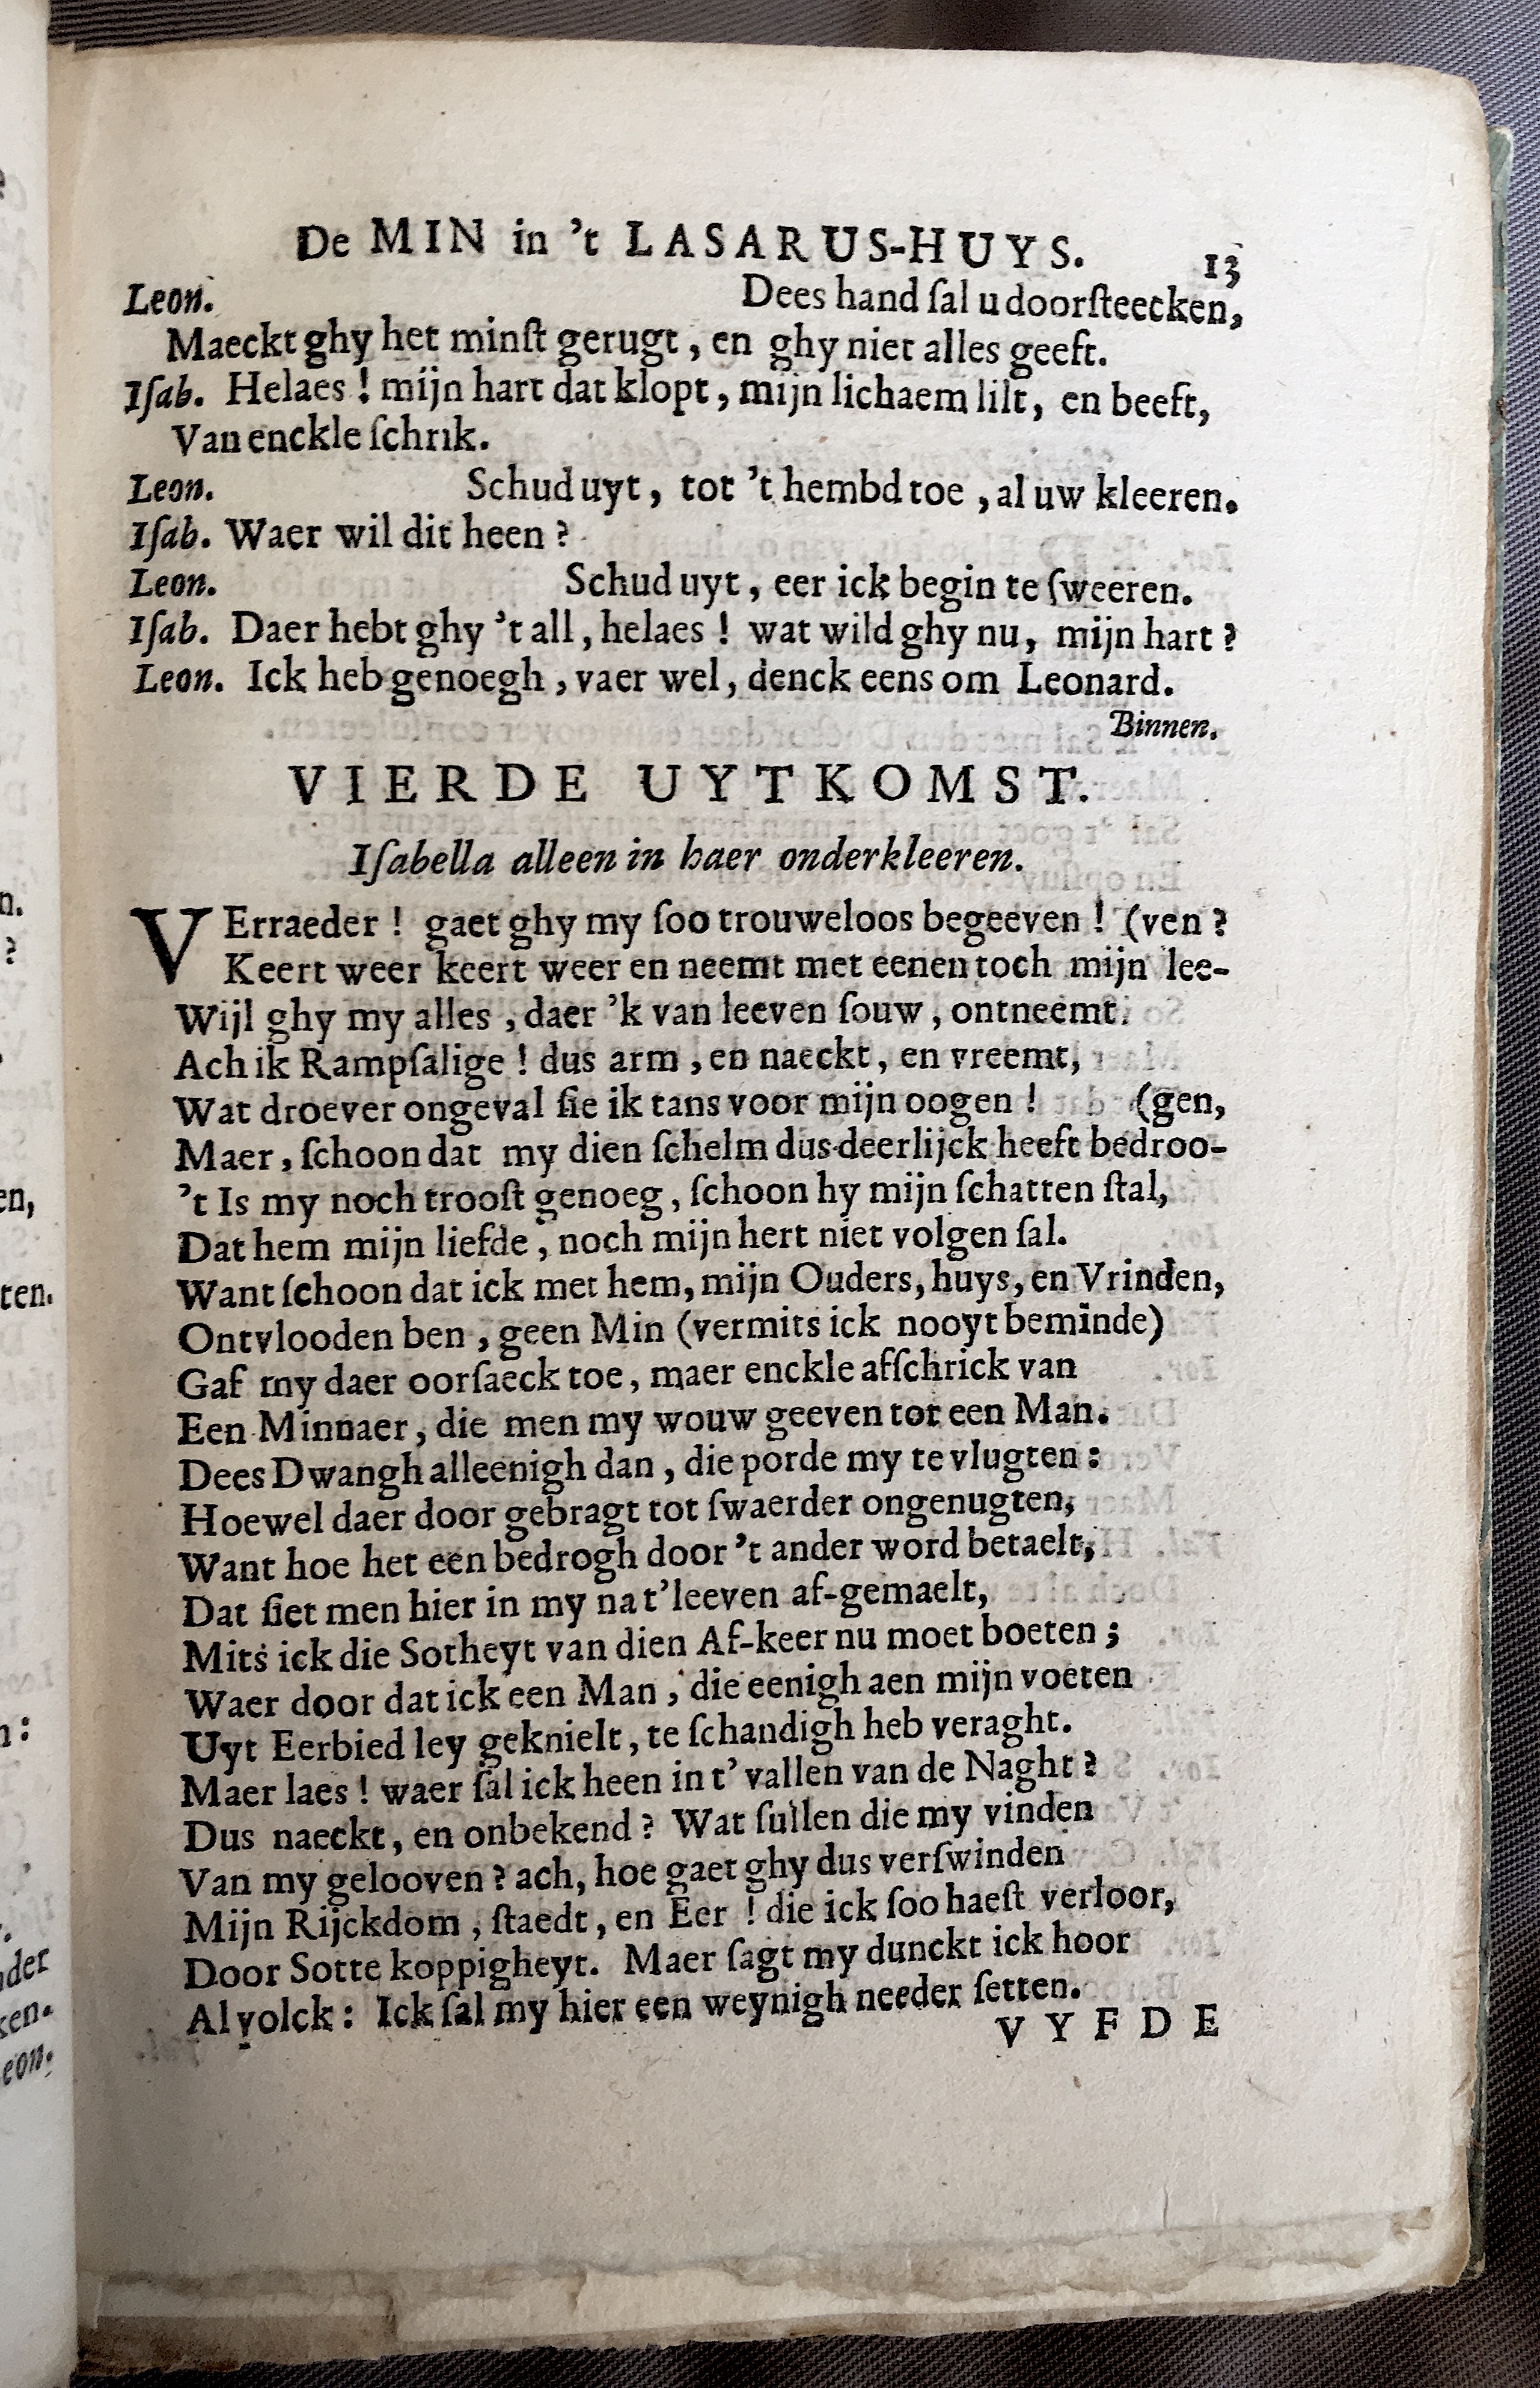 De MIN in 't LASARUS-HUYS. 13
Leon. Dees hand ſal u doorſteecken,
Maeckt ghy het minſt gerugt, en ghy niet alles geeft.
Iſab. Helaes! mijn hart dat klopt, mijn lichaem lilt, en beeft,
Van enckle ſchrik.
Leon. Schud uyt, tot 't hembd toe, al uw kleeren.
Iſab. Waer wil dit heen?
Leon. Schud uyt, eer ick begin te ſweeren.
Iſab. Daer hebt ghy 't all, helaes! wat wild ghy nu, mijn hart?
Leon. Ick heb genoegh, vaer wel, denck eens om Leonard.
Binnen.
VIERDE UYTKOMST.
Iſabella alleen in haer onderkleeren.
VErraeder! gaet ghy my ſoo trouweloos begeeven! (ven?
Keert weer keert weer en neemt met eenen toch mijn lee-
Wijl ghy my alles, daer 'k van leeven ſouw, ontneemt.
Ach ik Rampſalige! dus arm, en naeckt, en vreemt,
Wat droever ongeval ſie ik tans voor mijn oogen! (gen,
Maer, ſchoon dat my dien ſchelm dus deerlijck heeft bedroo-
't Is my noch trooſt genoeg, ſchoon hy mijn ſchatten ſtal,
Dat hem mijn liefde, noch mijn hert niet volgen ſal.
Want ſchoon dat ick met hem, mijn Ouders, huys, en Vrinden,
Ontvlooden ben, geen Min (vermits ick nooyt beminde)
Gaf my daer oorſaeck toe, maer enckle afſchrick van
Een Minnaer, die men my wouw geeven tot een Man.
Dees Dwangh alleenigh dan, die porde my te vlugten:
Hoewel daer door gebragt tot ſwaerder ongenugten,
Want hoe het een bedrogh door 't ander word betaelt,
Dat ſiet men hier in my na t'leeven af-gemaelt,
Mits ick die Sotheyt van dien Af-keer nu moet boeten;
Waer door dat ick een Man, die eenigh aen mijn voeten
Uyt Eerbied ley geknielt, te ſchandigh heb veraght.
Maer laes! waer ſal ick heen in t' vallen van de Naght?
Dus naeckt, en onbekend? Wat ſullen die my vinden
Van my gelooven? ach, hoe gaet ghy dus verſwinden
Mijn Rijckdom, ſtaedt, en Eer! die ick ſoo haeſt verloor,
Door Sotte koppigheyt. Maer ſagt my dunckt ick hoor
Al volck: Ick ſal my hier een weynigh needer ſetten.
VYFDE